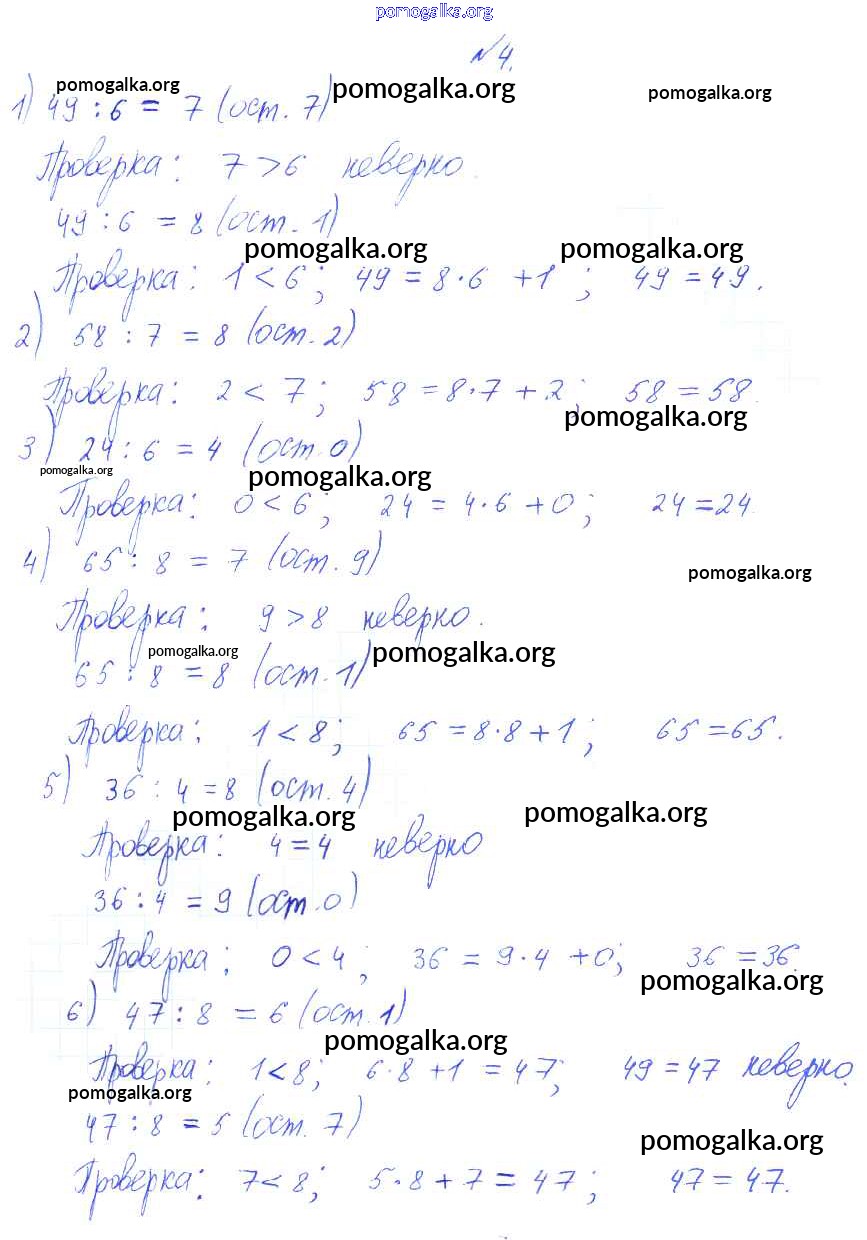 pomogalka.org
№4.
pomogalka.org pomogalka.org pomogalka.org
1) 49 : 6 = 7 (ост. 7)
Проверка: 7 > 6 неверно.
49 : 6 = 8 (ост. 1)
pomogalka.org pomogalka.org
Проверка: 1 < 6; 49 = 8·6 + 1; 49 = 49.
2) 58 : 7 = 8 (ост. 2)
Проверка: 2 < 7; 58 = 8·7 + 2; 58 = 58.
pomogalka.org
3) 24 : 6 = 4 (ост. 0)
pomogalka.org pomogalka.org
Проверка: 0 < 6; 24 = 4·6 + 0; 24 = 24.
4) 65 : 8 = 7 (ост. 9)
pomogalka.org
Проверка: 9 > 8 неверно.
pomogalka.org pomogalka.org
65 : 8 = 8 (ост. 1)
Проверка: 1 < 8; 65 = 8·8 + 1; 65 = 65.
5) 36 : 4 = 8 (ост. 4)
pomogalka.org pomogalka.org
Проверка: 4 = 4 неверно
36 : 4 = 9 (ост. 0)
Проверка: 0 < 4; 36 = 9·4 + 0; 36 = 36.
pomogalka.org
6) 47 : 8 = 6 (ост. 1)
pomogalka.org
Проверка: 1 < 8; 6·8 + 1 = 47; 49 = 47 неверно.
pomogalka.org
47 : 8 = 5 (ост. 7)
pomogalka.org
Проверка: 7 < 8; 5·8 + 7 = 47; 47 = 47.